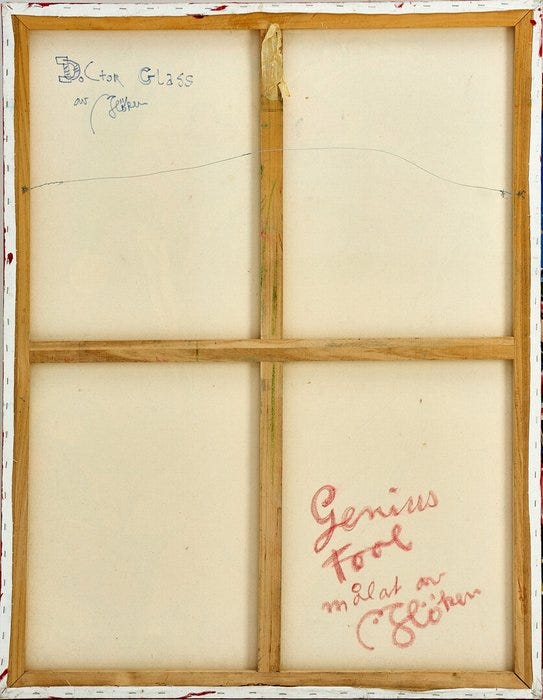 Doctor Glass
av Slöken
Genius
Fool
målat av
Slöken